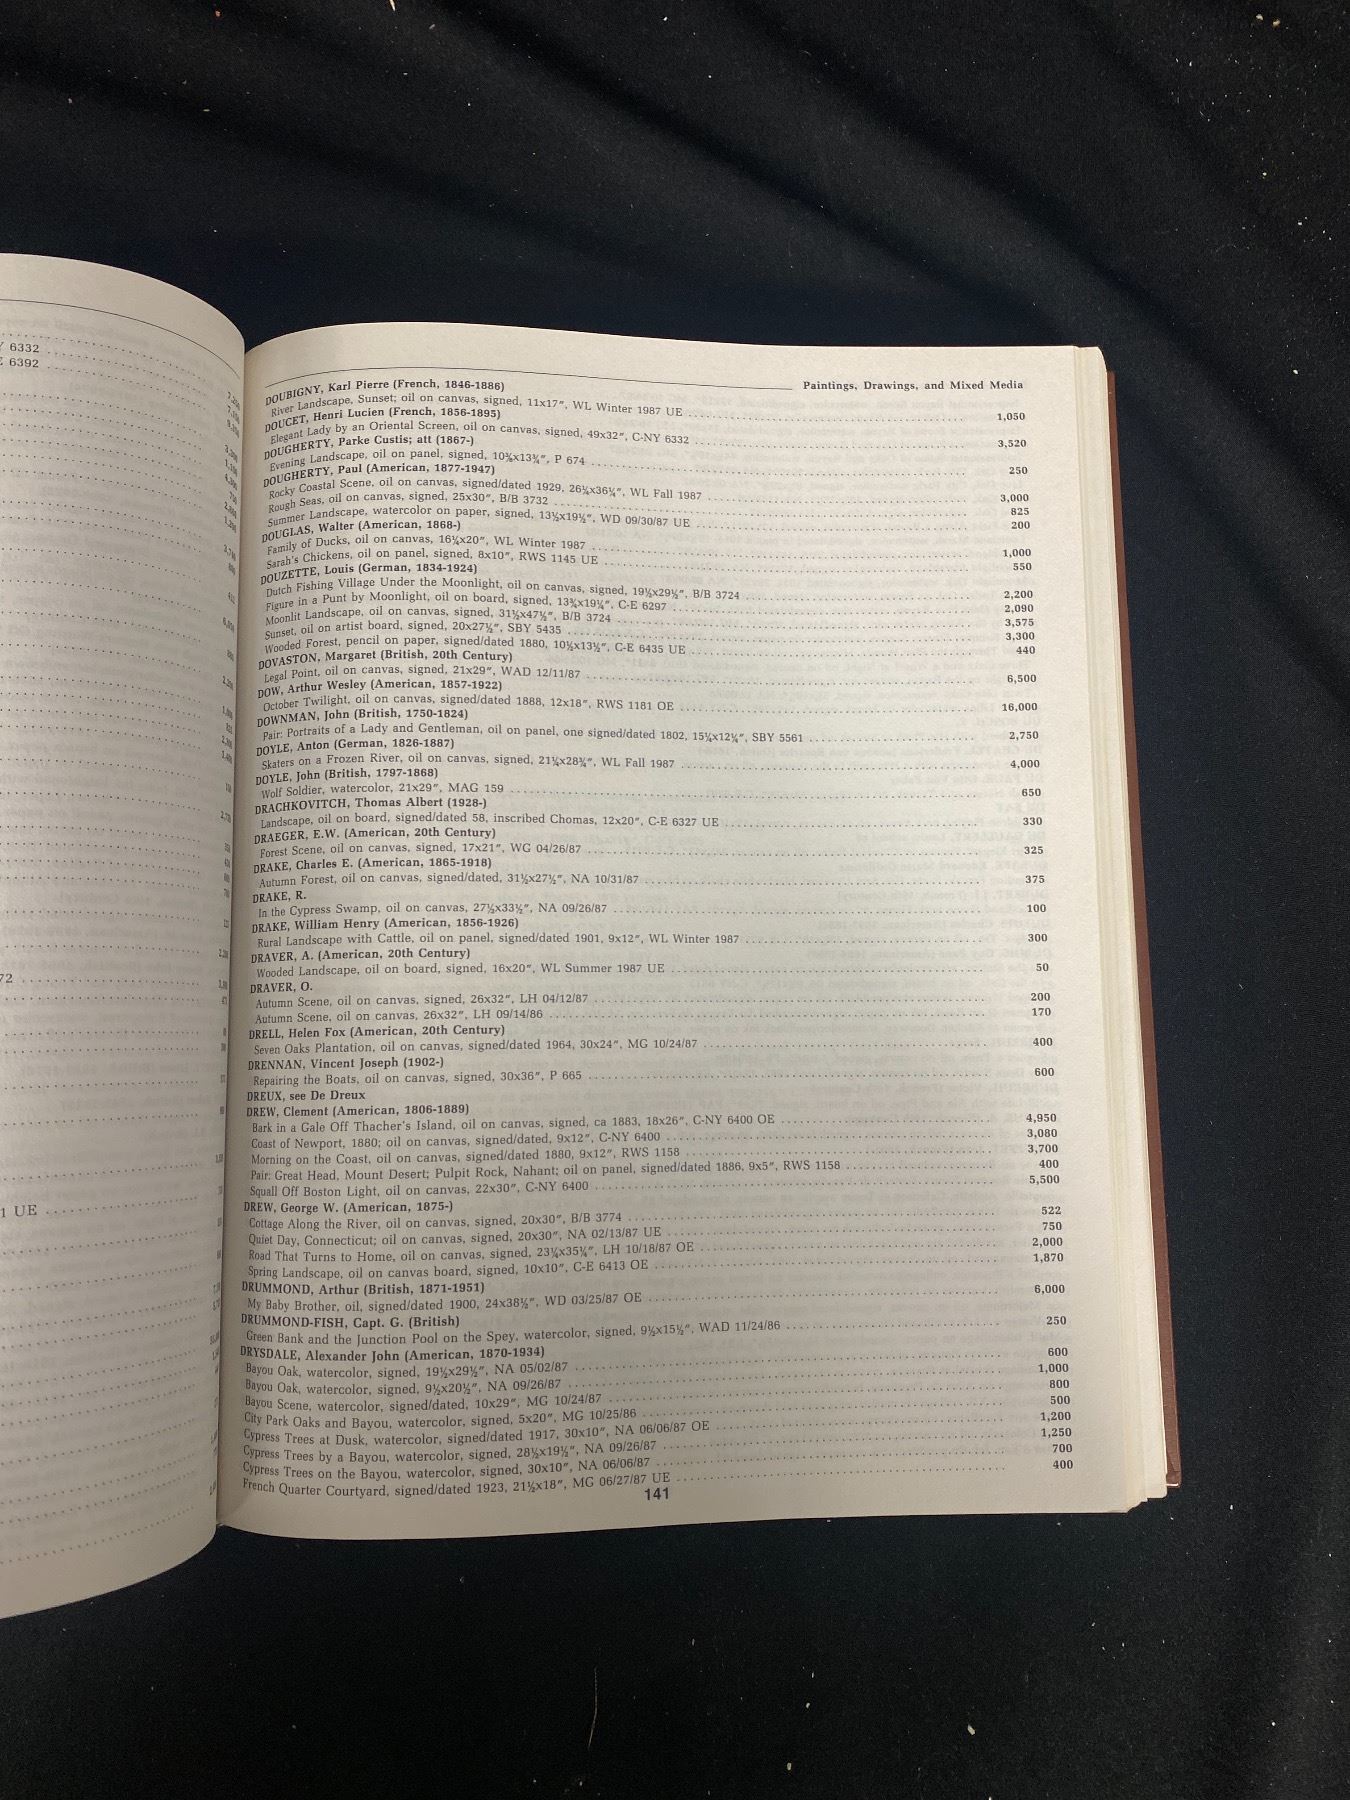 Y 6332
E 6392
72
1 UE
Paintings, Drawings, and Mixed Media
DOUBIGNY, Karl Pierre (French, 1846-1886)
River Landscape, Sunset; oil on canvas, signed, 11x17", WL Winter 1987 UE 1,050
DOUCET, Henri Lucien (French, 1856-1895)
Elegant Lady by an Oriental Screen, oil on canvas, signed, 49x32", C-NY 6332 3,520
DOUGHERTY, Parke Custis; att (1867-)
Evening Landscape, oil on panel, signed, 10⅜x13¾", P 674 250
DOUGHERTY, Paul (American, 1877-1947)
Rocky Coastal Scene, oil on canvas, signed/dated 1929, 26¼x36¼", WL Fall 1987 3,000
Rough Seas, oil on canvas, signed, 25x30", B/B 3732 825
Summer Landscape, watercolor on paper, signed, 13½x19½", WD 09/30/87 UE 200
DOUGLAS, Walter (American, 1868-)
Family of Ducks, oil on canvas, 16¼x20", WL Winter 1987 1,000
Sarah's Chickens, oil on panel, signed, 8x10", RWS 1145 UE 550
DOUZETTE, Louis (German, 1834-1924)
Dutch Fishing Village Under the Moonlight, oil on canvas, signed, 19½x29½", B/B 3724 2,200
Figure in a Punt by Moonlight, oil on board, signed, 13¾x19¼", C-E 6297 2,090
Moonlit Landscape, oil on canvas, signed, 31½x47½", B/B 3724 3,575
Sunset, oil on artist board, signed, 20x27½", SBY 5435 3,300
Wooded Forest, pencil on paper, signed/dated 1880, 10½x13½", C-E 6435 UE 440
DOVASTON, Margaret (British, 20th Century)
Legal Point, oil on canvas, signed, 21x29", WAD 12/11/87 6,500
DOW, Arthur Wesley (American, 1857-1922)
October Twilight, oil on canvas, signed/dated 1888, 12x18", RWS 1181 OE 16,000
DOWNMAN, John (British, 1750-1824)
Pair: Portraits of a Lady and Gentleman, oil on panel, one signed/dated 1802, 15¼x12¼", SBY 5561 2,750
DOYLE, Anton (German, 1826-1887)
Skaters on a Frozen River, oil on canvas, signed, 21¼x28¾", WL Fall 1987 4,000
DOYLE, John (British, 1797-1868)
Wolf Soldier, watercolor, 21x29", MAG 159 650
DRACHKOVITCH, Thomas Albert (1928-)
Landscape, oil on board, signed/dated 58, inscribed Chomas, 12x20", C-E 6327 UE 330
DRAEGER, E.W. (American, 20th Century)
Forest Scene, oil on canvas, signed, 17x21", WG 04/26/87 325
DRAKE, Charles E. (American, 1865-1918)
Autumn Forest, oil on canvas, signed/dated, 31½x27½", NA 10/31/87 375
DRAKE, R.
In the Cypress Swamp, oil on canvas, 27½x33½", NA 09/26/87 100
DRAKE, William Henry (American, 1856-1926)
Rural Landscape with Cattle, oil on panel, signed/dated 1901, 9x12", WL Winter 1987 300
DRAVER, A. (American, 20th Century)
Wooded Landscape, oil on board, signed, 16x20", WL Summer 1987 UE 50
DRAVER, O.
Autumn Scene, oil on canvas, signed, 26x32", LH 04/12/87 200
Autumn Scene, oil on canvas, 26x32", LH 09/14/86 170
DRELL, Helen Fox (American, 20th Century)
Seven Oaks Plantation, oil on canvas, signed/dated 1964, 30x24", MG 10/24/87 400
DRENNAN, Vincent Joseph (1902-)
Repairing the Boats, oil on canvas, signed, 30x36", P 665 600
DREUX, see De Dreux
DREW, Clement (American, 1806-1889)
Bark in a Gale Off Thacher's Island, oil on canvas, signed, ca 1883, 18x26", C-NY 6400 OE 4,950
Coast of Newport, 1880; oil on canvas, signed/dated, 9x12", C-NY 6400 3,080
Morning on the Coast, oil on canvas, signed/dated 1880, 9x12", RWS 1158 3,700
Pair: Great Head, Mount Desert; Pulpit Rock, Nahant; oil on panel, signed/dated 1886, 9x5", RWS 1158 400
Squall Off Boston Light, oil on canvas, 22x30", C-NY 6400 5,500
DREW, George W. (American, 1875-)
Cottage Along the River, oil on canvas, signed, 20x30", B/B 3774 522
Quiet Day, Connecticut; oil on canvas, signed, 20x30", NA 02/13/87 UE 750
Road That Turns to Home, oil on canvas, signed, 23¼x35¼", LH 10/18/87 OE 2,000
Spring Landscape, oil on canvas board, signed, 10x10", C-E 6413 OE 1,870
DRUMMOND, Arthur (British, 1871-1951)
My Baby Brother, oil, signed/dated 1900, 24x38½", WD 03/25/87 OE 6,000
DRUMMOND-FISH, Capt. G. (British)
Green Bank and the Junction Pool on the Spey, watercolor, signed, 9½x15½", WAD 11/24/86 250
DRYSDALE, Alexander John (American, 1870-1934)
Bayou Oak, watercolor, signed, 19½x29½", NA 05/02/87 600
Bayou Oak, watercolor, signed, 9½x20½", NA 09/26/87 1,000
Bayou Scene, watercolor, signed/dated, 10x29", MG 10/24/87 800
City Park Oaks and Bayou, watercolor, signed, 5x20", MG 10/25/86 500
Cypress Trees at Dusk, watercolor, signed/dated 1917, 30x10", NA 06/06/87 OE 1,200
Cypress Trees by a Bayou, watercolor, signed, 28½x19½", NA 09/26/87 1,250
Cypress Trees on the Bayou, watercolor, signed, 30x10", NA 06/06/87 700
French Quarter Courtyard, signed/dated 1923, 21½x18", MG 06/27/87 UE 400
141